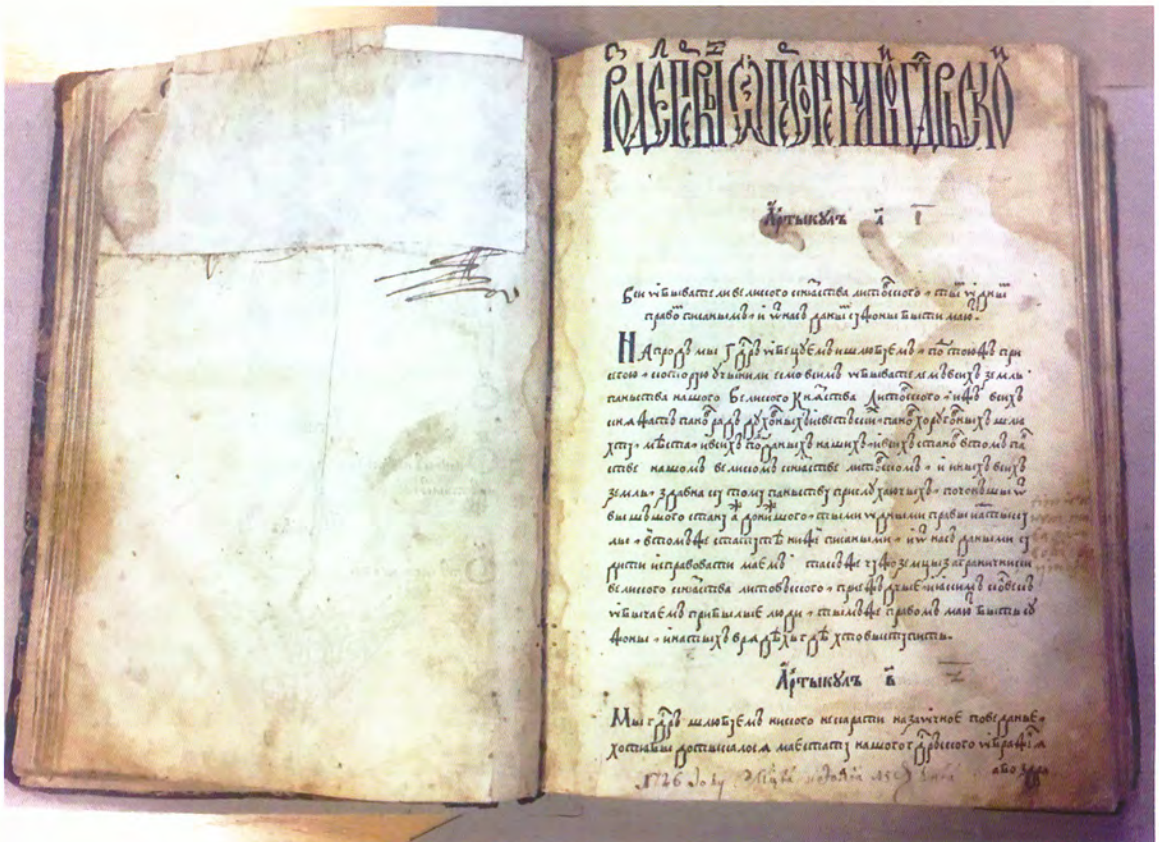 РОЗДЕЛ ПЕРВЫЙ Ѡ ПЕРСОНЕ НАШОЙ ГДРЬСКОЙ
Артыкулъ а҃
Вси ѡбыватели великого князства литовского, тым ѡдным
правом писанымъ, и ѿ насъ даным сужоны быти маю.
Напродъ мы Гдръ ѡбецуемъ и шлюбуемъ, по тою жъ при
сегою, которую учынили есмо всимъ ѡбывателемъ всихъ земль
паньства нашого Великого Князства Литовского, ижъ всихъ
княжатъ панов радъ духовныхъ и светскихъ, панов хоруговныхъ шля
хту, мѣста, и всихъ подданыхъ нашихъ, и всихъ станов в том па
стве нашомъ великомъ князстве литовскомъ, и иныхъ всихъ
земль, здавна ку тому паньству прислухаючыхъ, почоншы ѿ
вышъшого стану аж до нижшого, тыми ѡдными правы
в томъже статуте ниже писаными, и ѿ насъ даными су
дити и справовати маемъ. такъже чужоземцы заграничники
великого князства литовъского, приежъдчые и якимъ кольвекъ
ѡбычаемъ прибылые люди, тымъже правомъ маю быти су
жоны, и на тыхъ врядехъ где хто выступить.
Артыкулъ в҃
Мы гдръ шлюбуемъ никого не карати на заѡчное поведанье,
хотя бы дотыкалося маестату нашого гдръского ѡбраженя
або здра